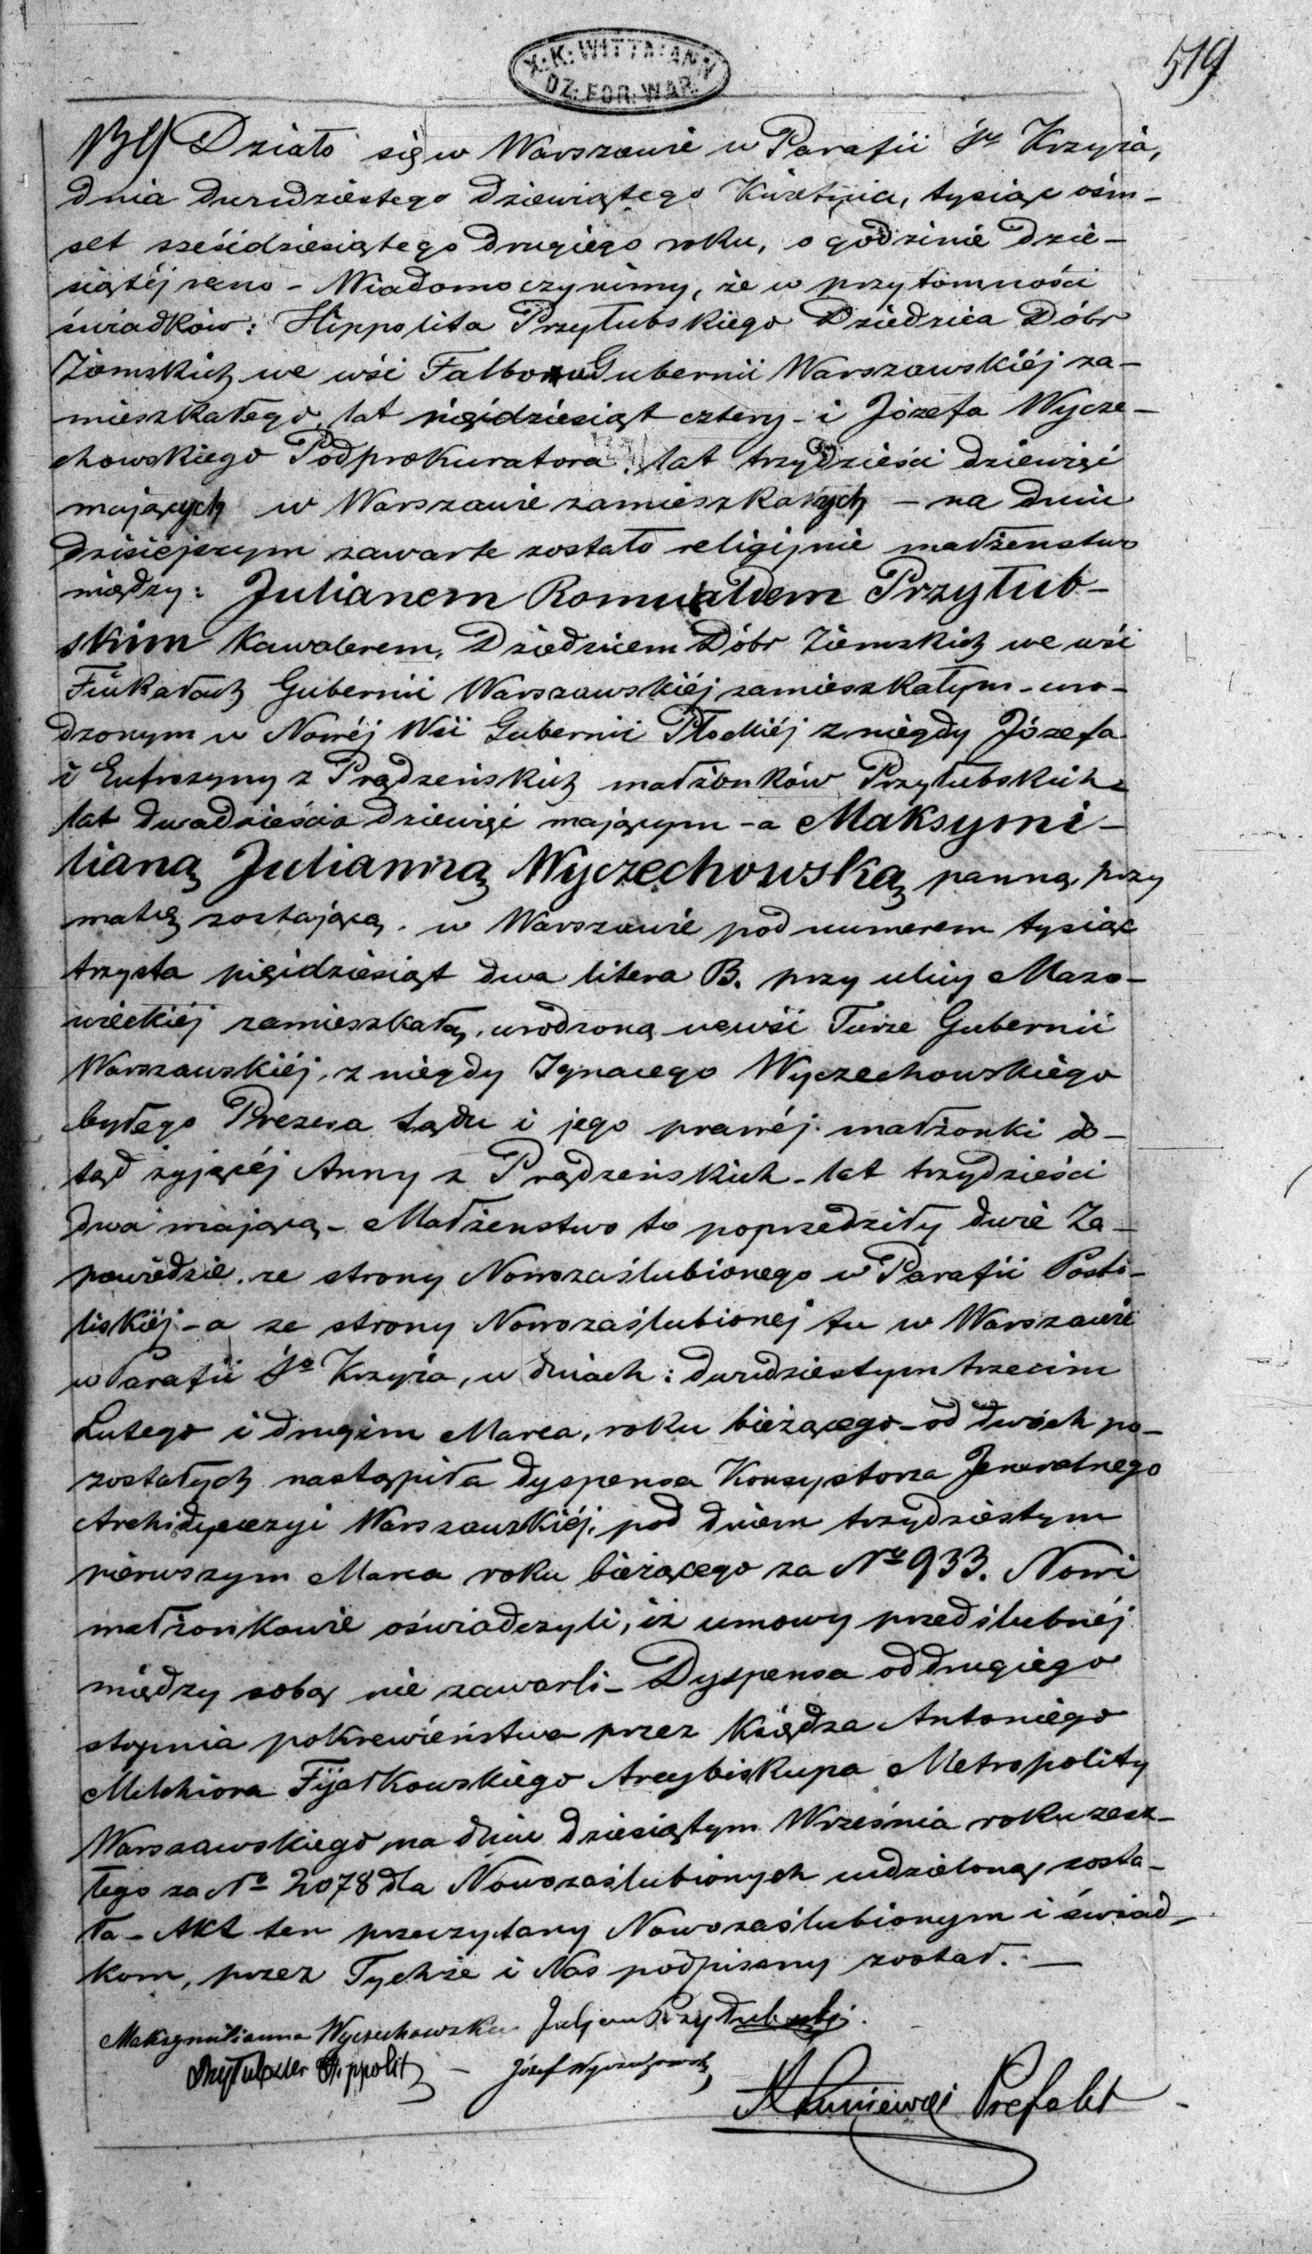 X. K. WITTMANN
DZ. FOR. WAR.
519
Działo się w Warszawie w Parafii Sgo Krzyża,
dnia dwudziestego dziewiątego Kwietnia, tysiąc ośm-
set sześćdziesiątego drugiego roku, o godzinie dzie-
siątéj rano – Wiadomo czynimy, że w przytomności
świadków: Hippolita Przyłubskiego Dziedzica Dóbr
Ziemskich we wsi Gubernii Warszawskiéj za-
mieszkałego, lat pięćdziesiąt cztery – i Józefa Wycze-
chowskiego Podprokuratora, lat trzydzieści dziewięć
mających w Warszawie zamieszkałych – na dniu
dzisiejszym zawarte zostało religijnie małżeństwo
między: Julianem Romualdem Przyłub-
skim Kawalerem, Dziedzicem Dóbr Ziemskich we wsi
Gubernii Warszawskiéj zamieszkałym – uro-
dzonym w Nowéj Wsi Gubernii Płockiéj z niegdy Józefa
i Eufrozyny z Prądzeńskich małżonków Przyłubskich
lat dwadzieścia dziewięć mającym – a Maksymi-
lianą Julianną Wyczechowską panną, przy
matce zostającą, w Warszawie pod numerem tysiąc
trzysta pięćdziesiąt dwa litera B. przy ulicy Mazo-
wieckiéj zamieszkałą, urodzoną we wsi Turze Gubernii
Warszawskiéj, z niegdy Ignacego Wyczechowskiego
byłego Prezesa Sądu i jego prawéj małżonki do-
tąd żyjącéj Anny z Prądzeńskich – lat trzydzieści
dwa mającą – Małżeństwo to poprzedziły dwie Za-
powiedzie, ze strony Nowozaślubionego w Parafii Posto-
liskiéj – a ze strony Nowozaślubionej tu w Warszawie
w Parafii Sgo Krzyża, w dniach: dwudziestym trzecim
Lutego i drugim Marca, roku bieżącego – od dwóch po-
zostałych nastąpiła dyspensa Konsystorza Jeneralnego
Archidyecezyi Warszawskiéj, pod dniem trzydziestym
pierwszym Marca roku bieżącego za No 933. Nowi
małżonkowie oświadczyli, iż umowy przedślubnéj
między sobą nie zawarli – Dyspensa od drugiego
stopnia pokrewieństwa przez Księdza Antoniego
Melchiora Fijałkowskiego Arcybiskupa Metropolity
Warszawskiego na dniu dziesiątym Września roku zesz-
łego za No 2078 dla Nowozaślubionych udzieloną zosta-
ła – Akt ten przeczytany Nowozaślubionym i świad-
kom, przez Tychże i Nas podpisany został. –
Maksymilianna Wyczechowska Juljan Przyłubski
Przyłubski Hippolit – Józef Wyczechowski
Prefekt